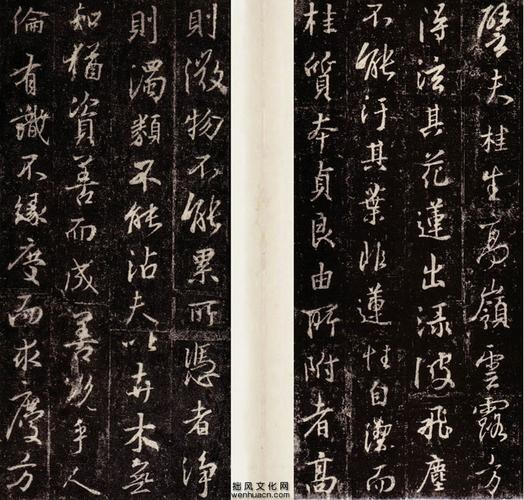 譬夫桂生高嶺雲露方
得泫其花蓮出淥波飛塵
不能汙其葉非蓮性自潔而
桂質本貞良由所附者高
則微物不能累所憑者淨
則濁類不能沾夫以卉木無
知猶資善而成善況乎人
倫有識不緣慶而求慶方
拙风文化网
wenhuacn.com